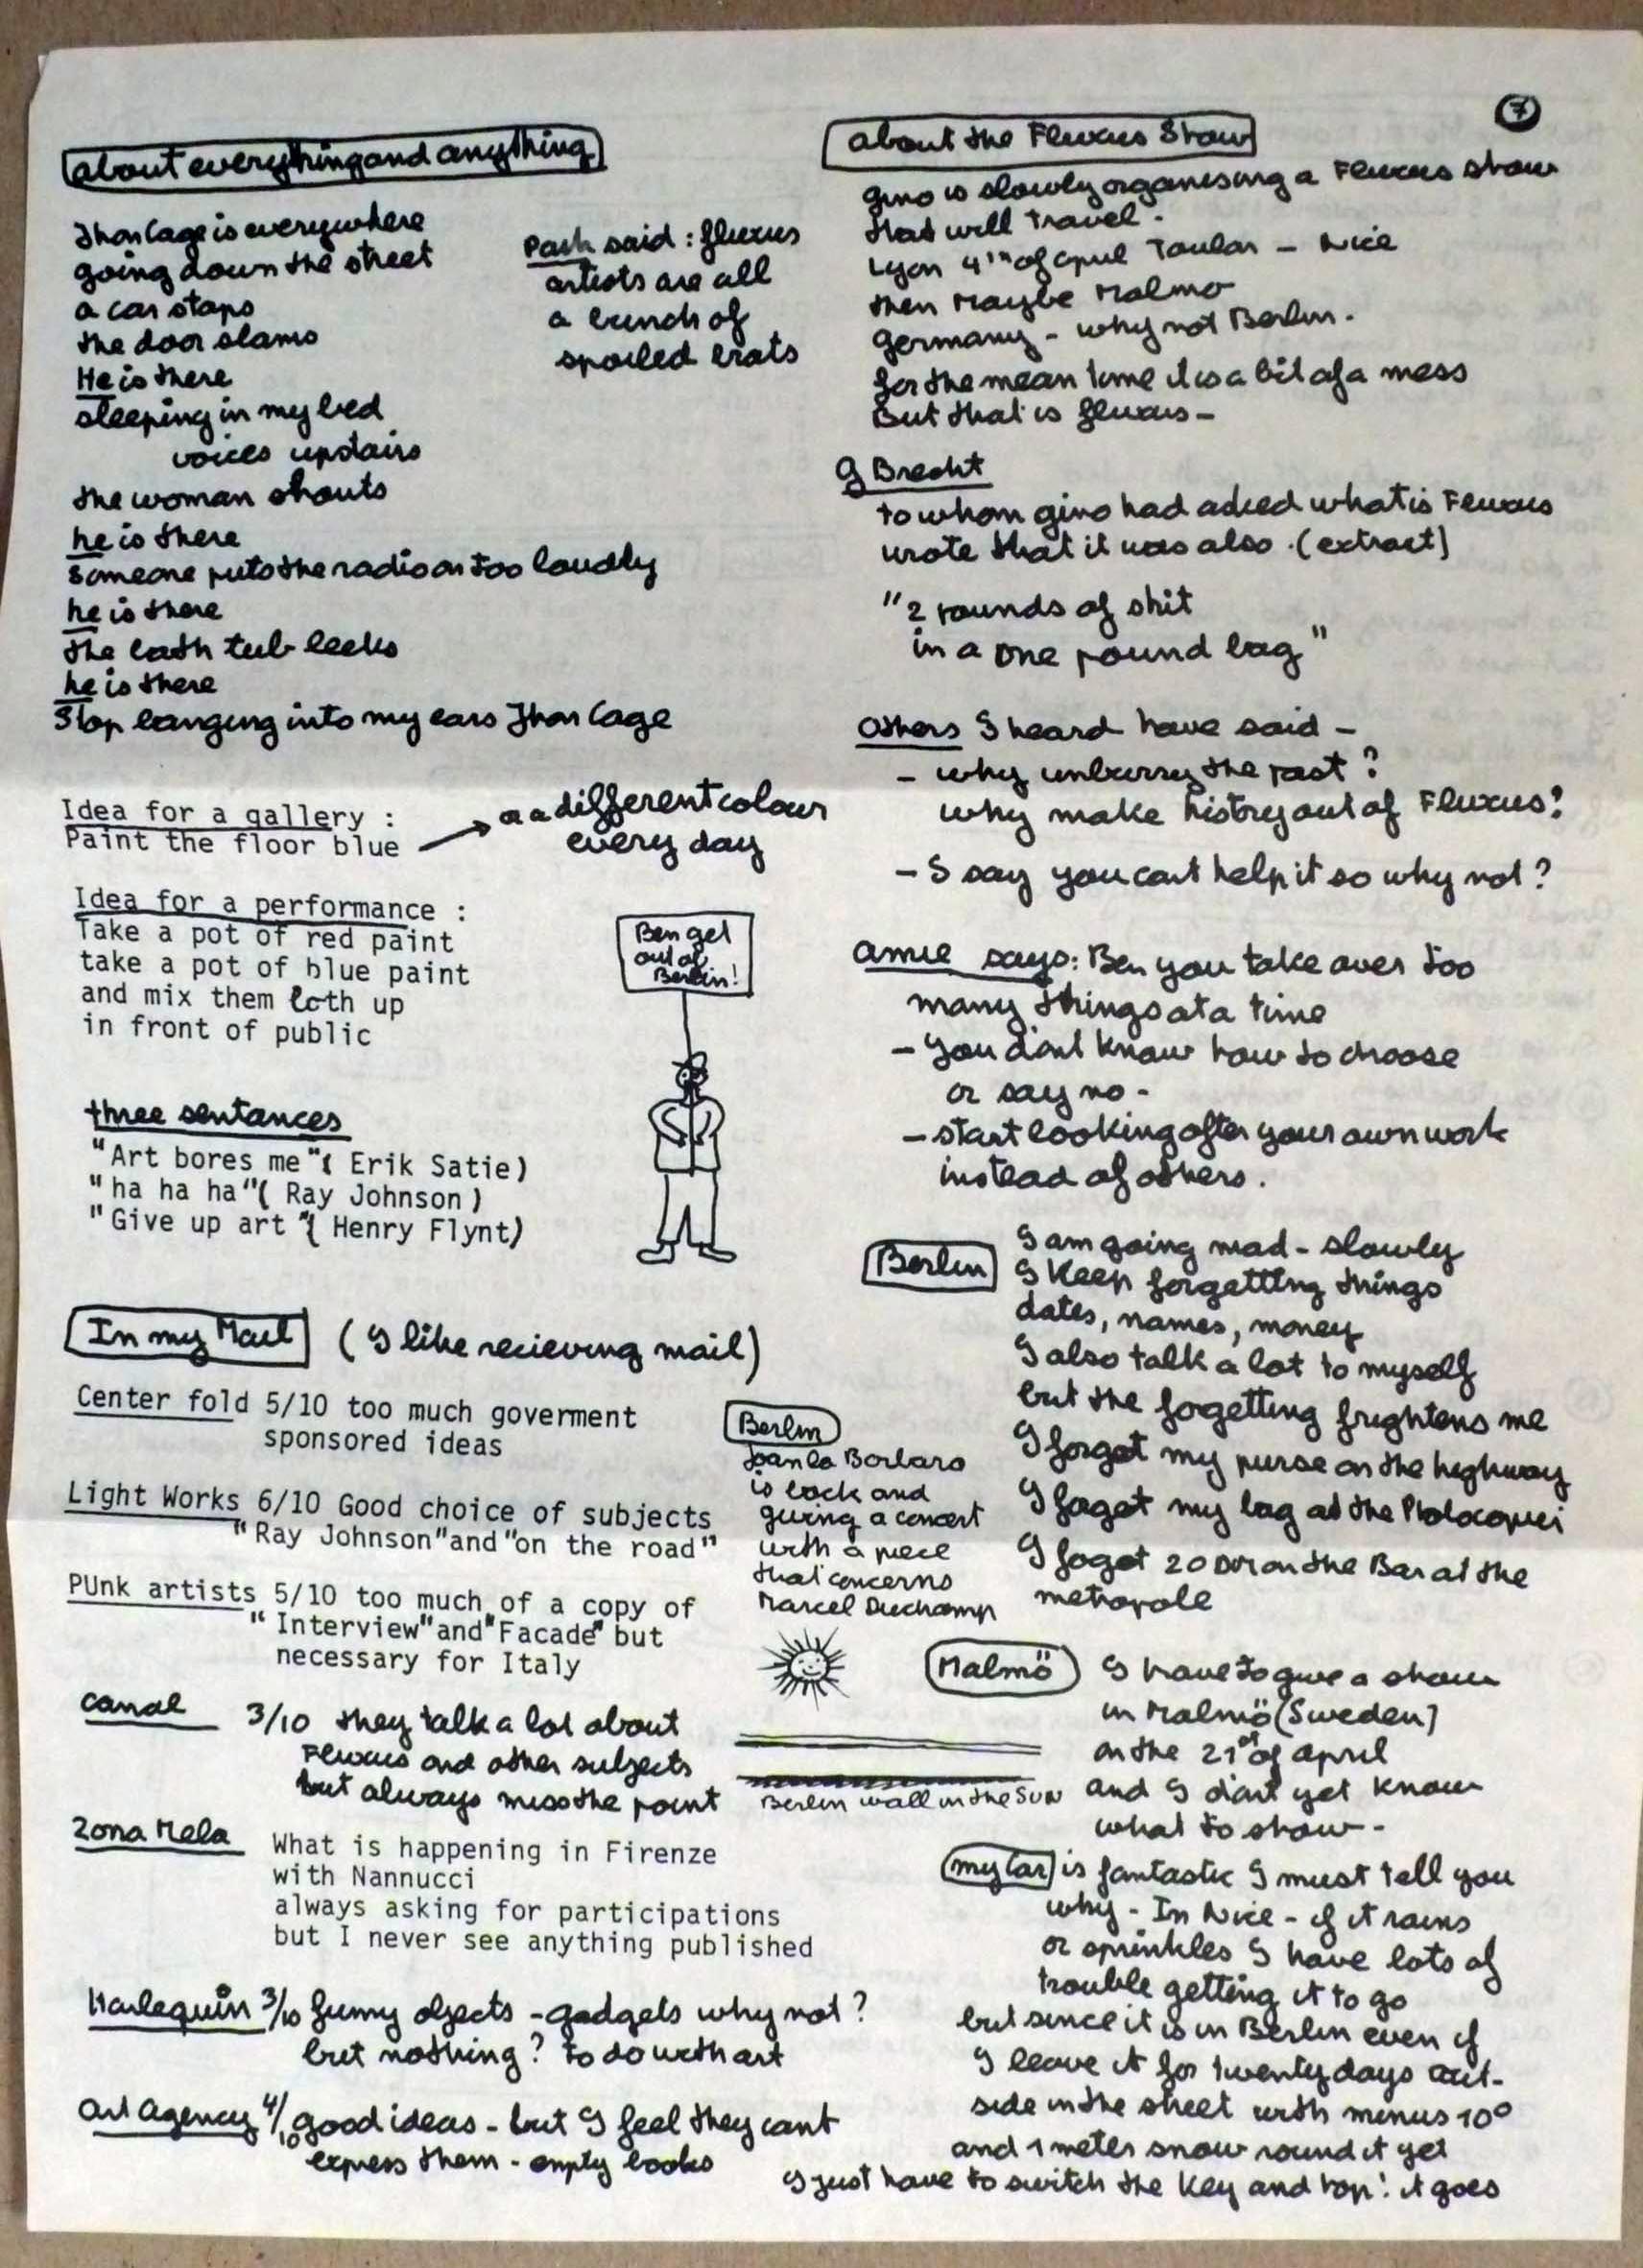 7
about everything and anything
Jhon Cage is everywhere
going down the street
a car stops
the door slams
He is there
sleeping in my bed
voices upstairs
the woman shouts
he is there
Someone puts the radio on too loudly
he is there
the bath tub leeks
he is there
Stop banging into my ears Jhon Cage
said : fluxus
artists are all
a bunch of
spoiled brats
Idea for a gallery :
Paint the floor blue
a a different colour
every day
Idea for a performance :
Take a pot of red paint
take a pot of blue paint
and mix them both up
in front of public
Ben get
out of
Berlin!
three sentances
"Art bores me"( Erik Satie)
"ha ha ha"( Ray Johnson )
"Give up art "( Henry Flynt)
In my Mail (I like recieving mail)
Center fold 5/10 too much goverment
sponsored ideas
Light Works 6/10 Good choice of subjects
"Ray Johnson"and"on the road"
PUnk artists 5/10 too much of a copy of
"Interview"and"Facade" but
necessary for Italy
canal 3/10 they talk a lot about
Fluxus and other subjects
but always miss the point
Zona Mela What is happening in Firenze
with Nannucci
always asking for participations
but I never see anything published
Harlequin 3/10 funny objects - gadgets why not?
but nothing? to do with art
Art Agency 4/10 good ideas - but I feel they cant
express them - empty books
Berlin
Joan la Barbara
is back and
giving a concert
with a piece
that concerns
Marcel Duchamp
Berlin wall in the SUN
about the Fluxus Show
gino is slowly organising a Fluxus show
that will travel -
Lyon 4th of april Toulon - Nice
then Maybe Malmo
germany - why not Berlin.
for the mean time it is a bit of a mess
But that is fluxus -
G Brecht
to whom gino had asked what is Fluxus
wrote that it was also (extract)
"2 pounds of shit
in a one pound bag"
Others I heard have said -
- why unburry the past?
why make history out of Fluxus?
- I say you cant help it so why not?
Annie says: Ben you take over too
many things at a time
- you dont know how to choose
or say no -
- start looking after your own work
instead of others.
Berlin
I am going mad - slowly
I keep forgetting things
dates, names, money
I also talk a lot to myself
but the fogetting frightens me
I forgot my purse on the highway
I fogot my bag at the
I fogot 20 DM on the Bar at the
metropole
Malmö I have to give a show
in Malmö (Sweden)
on the 21st of april
and I dont yet know
what to show -
my Car is fantastic I must tell you
why - In Nice - if it rains
or sprinkles I have lots of
trouble getting it to go
but since it is in Berlin even if
I leave it for twenty days out-
side in the street with minus 10°
and 1 meter snow round it yet
I just have to switch the key and hop! it goes